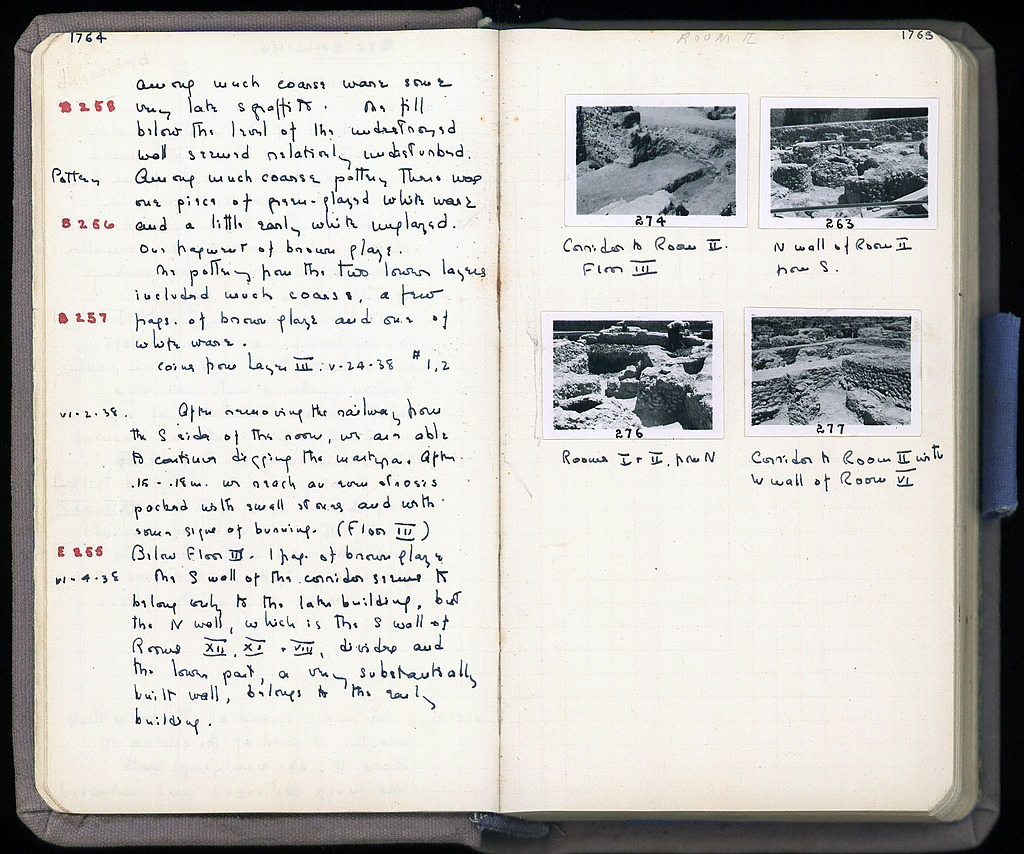 1764
among much coarse ware some
B 258 very late sgraffito. The fill
below the level of the undestroyed
wall seemed relatively undisturbed.
Pottery Among much coarse pottery there was
one piece of green-glazed white ware
B 256 and a little early white unglazed.
One fragment of brown glaze.
The pottery from the two lower layers
included much coarse, a few
B 257 frags. of brown glaze and one of
white ware.
Coins from Layer III: V-24-38 #1,2
VI-2-38. After removing the railway from
the S side of the room, we are able
to continue digging the martyra. After
.15 - .18m. we reach an
packed with small stones and with
some signs of burning. (Floor III)
E 255 Below Floor III. 1 frag. of brown glaze
VI-4-38 The S wall of the corridor seems to
belong only to the late building, but
the N wall, which is the S wall of
Rooms XII, XI + VIII, divides and
the lower part, a very substantially
built wall, belongs to the early
building.
1763
ROOM II
274
Corridor to Room II.
Floor III
263
N wall of Room II
from S.
276
Rooms I + II, from N
277
Corridor to Room II with
W wall of Room VI